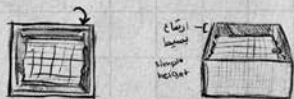 ارتفاع
بسيط
simple
height